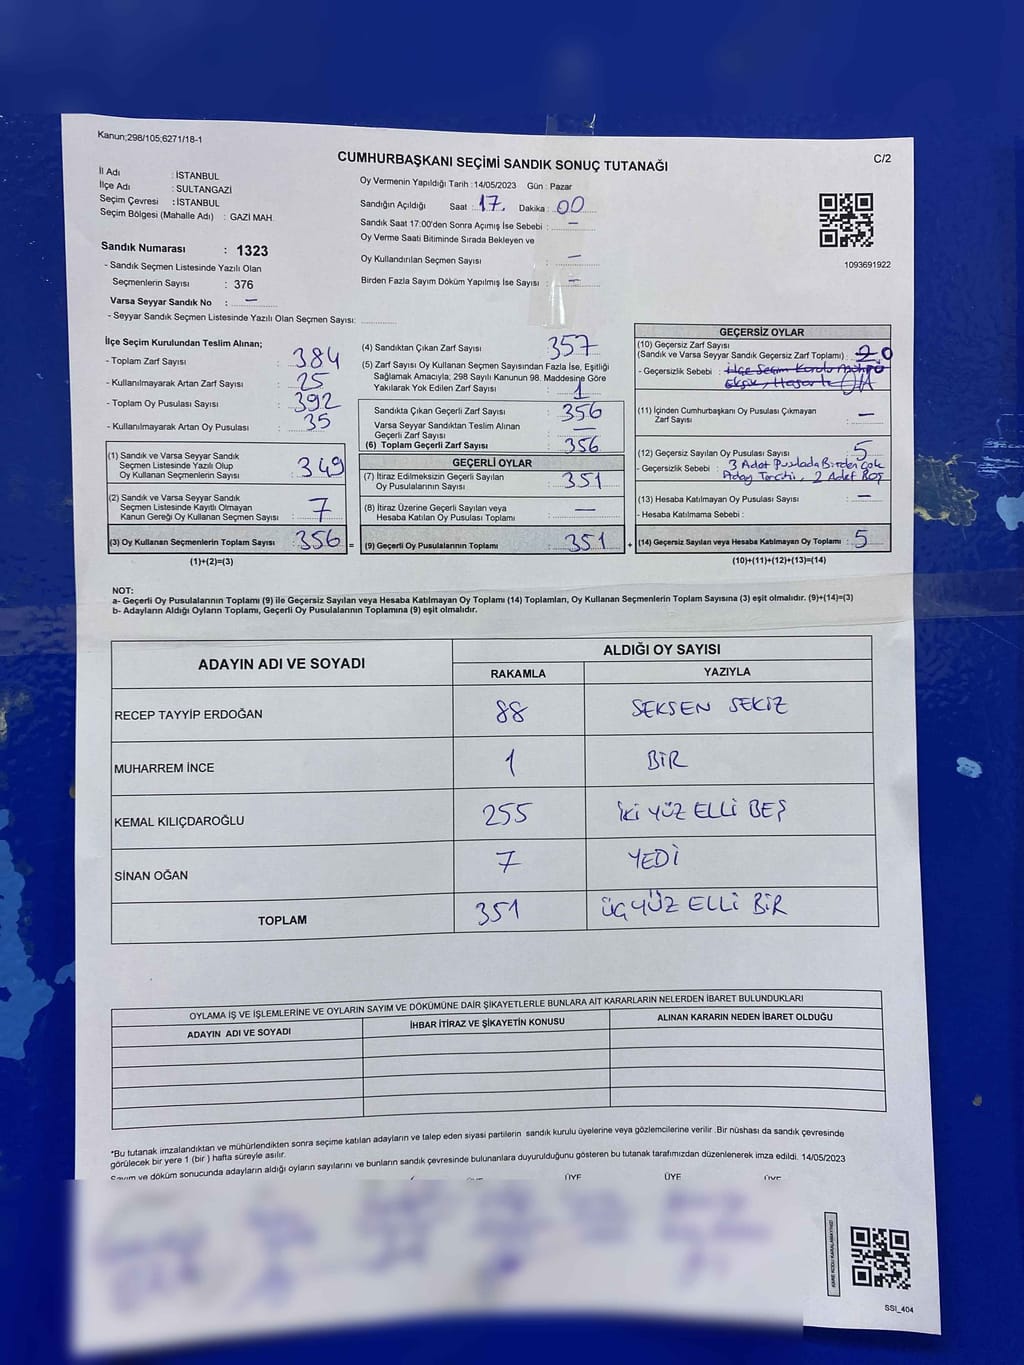 Kanun;298/105;6271/18-1
CUMHURBAŞKANI SEÇİMİ SANDIK SONUÇ TUTANAĞI
C/2
İl Adı : İSTANBUL
İlçe Adı : SULTANGAZİ
Seçim Çevresi : İSTANBUL
Seçim Bölgesi (Mahalle Adı) : GAZİ MAH.
Sandık Numarası : 1323
- Sandık Seçmen Listesinde Yazılı Olan
Seçmenlerin Sayısı : 376
Varsa Seyyar Sandık No : —
- Seyyar Sandık Seçmen Listesinde Yazılı Olan Seçmen Sayısı:
Oy Vermenin Yapıldığı Tarih : 14/05/2023 Gün : Pazar
Sandığın Açıldığı Saat : 17 Dakika : 00
Sandık Saat 17:00'den Sonra Açımış İse Sebebi : —
Oy Verme Saati Bitiminde Sırada Bekleyen ve
Oy Kullandırılan Seçmen Sayısı : —
Birden Fazla Sayım Döküm Yapılmış İse Sayısı : —
1093691922
İlçe Seçim Kurulundan Teslim Alınan;
- Toplam Zarf Sayısı : 384
- Kullanılmayarak Artan Zarf Sayısı : 25
- Toplam Oy Pusulası Sayısı : 392
- Kullanılmayarak Artan Oy Pusulası : 35
(1) Sandık ve Varsa Seyyar Sandık
Seçmen Listesinde Yazılı Olup
Oy Kullanan Seçmenlerin Sayısı : 349
(2) Sandık ve Varsa Seyyar Sandık
Seçmen Listesinde Kayıtlı Olmayan
Kanun Gereği Oy Kullanan Seçmen Sayısı : 7
(3) Oy Kullanan Seçmenlerin Toplam Sayısı : 356 =
(1)+(2)=(3)
(4) Sandıktan Çıkan Zarf Sayısı : 357
(5) Zarf Sayısı Oy Kullanan Seçmen Sayısından Fazla İse, Eşitliği
Sağlamak Amacıyla, 298 Sayılı Kanunun 98. Maddesine Göre
Yakılarak Yok Edilen Zarf Sayısı : 1
Sandıkta Çıkan Geçerli Zarf Sayısı : 356
Varsa Seyyar Sandıktan Teslim Alınan
Geçerli Zarf Sayısı : —
(6) Toplam Geçerli Zarf Sayısı : 356
GEÇERLİ OYLAR
(7) İtiraz Edilmeksizin Geçerli Sayılan
Oy Pusulalarının Sayısı : 351
(8) İtiraz Üzerine Geçerli Sayılan veya
Hesaba Katılan Oy Pusulası Toplamı : —
(9) Geçerli Oy Pusulalarının Toplamı : 351 +
GEÇERSİZ OYLAR
(10) Geçersiz Zarf Sayısı
(Sandık ve Varsa Seyyar Sandık Geçersiz Zarf Toplamı) : 0
- Geçersizlik Sebebi : İlçe Seçim Kurulu Mührü
Eksik, Hasarlı
(11) İçinden Cumhurbaşkanı Oy Pusulası Çıkmayan
Zarf Sayısı : —
(12) Geçersiz Sayılan Oy Pusulası Sayısı : 5
- Geçersizlik Sebebi : 3 Adet Pusulada Birden Çok
Aday Tercihi, 2 Adet Boş
(13) Hesaba Katılmayan Oy Pusulası Sayısı : —
- Hesaba Katılmama Sebebi :
(14) Geçersiz Sayılan veya Hesaba Katılmayan Oy Toplamı : 5
(10)+(11)+(12)+(13)=(14)
NOT:
a- Geçerli Oy Pusulalarının Toplamı (9) ile Geçersiz Sayılan veya Hesaba Katılmayan Oy Toplamı (14) Toplamları, Oy Kullanan Seçmenlerin Toplam Sayısına (3) eşit olmalıdır. (9)+(14)=(3)
b- Adayların Aldığı Oyların Toplamı, Geçerli Oy Pusulalarının Toplamına (9) eşit olmalıdır.
ADAYIN ADI VE SOYADI
ALDIĞI OY SAYISI
RAKAMLA YAZIYLA
RECEP TAYYİP ERDOĞAN 88 SEKSEN SEKİZ
MUHARREM İNCE 1 BİR
KEMAL KILIÇDAROĞLU 255 İKİ YÜZ ELLİ BEŞ
SİNAN OĞAN 7 YEDİ
TOPLAM 351 ÜÇYÜZ ELLİ BİR
OYLAMA İŞ VE İŞLEMLERİNE VE OYLARIN SAYIM VE DÖKÜMÜNE DAİR ŞİKAYETLERLE BUNLARA AİT KARARLARIN NELERDEN İBARET BULUNDUKLARI
ADAYIN ADI VE SOYADI İHBAR İTİRAZ VE ŞİKAYETİN KONUSU ALINAN KARARIN NEDEN İBARET OLDUĞU
*Bu tutanak imzalandıktan ve mühürlendikten sonra seçime katılan adayların ve talep eden siyasi partilerin sandık kurulu üyelerine veya gözlemcilerine verilir .Bir nüshası da sandık çevresinde
görülecek bir yere 1 (bir ) hafta süreyle asılır.
Sayım ve döküm sonucunda adayların aldığı oyların sayılarını ve bunların sandık çevresinde bulunanlara duyurulduğunu gösteren bu tutanak tarafımızdan düzenlenerek imza edildi. 14/05/2023
ÜYE ÜYE ÜYE ÜYE
KARE KODU KARALAMAYINIZ!
SSI_404